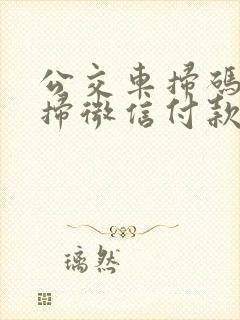 公交車掃碼
掃微信付款
璃然